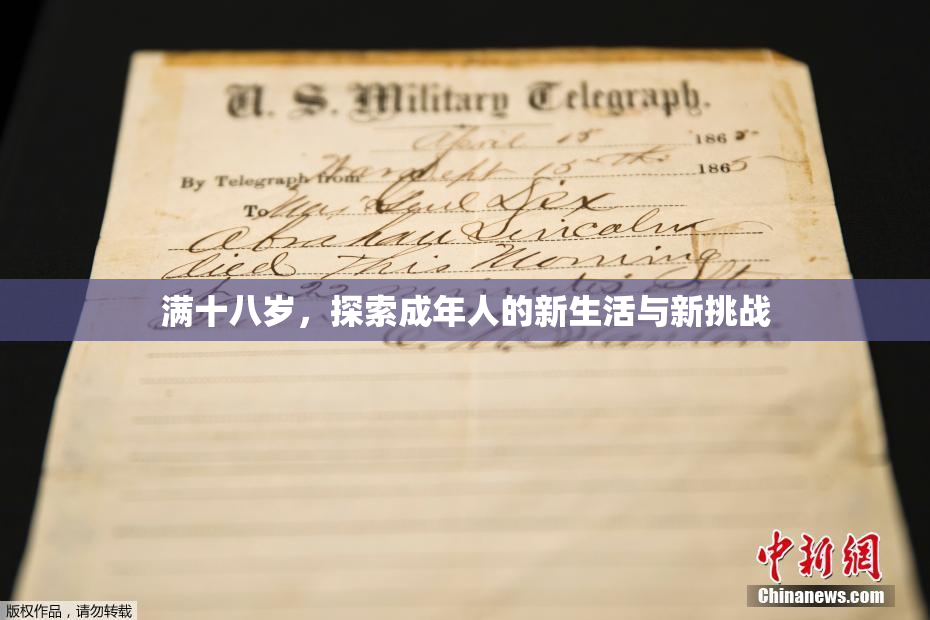 U. S. Military Telegraph.
April 15 1865
By Telegraph from War Dept 15th 1865
To Maj Genl Dix
Abraham Lincoln
died This Morning
22 minutes after
满十八岁，探索成年人的新生活与新挑战
E. M. Stanton
中新网
Chinanews.com
版权作品，请勿转载